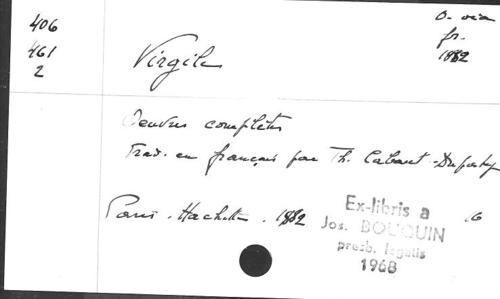 406
461
2
O. via
fr.
1882
Virgile
Oeuvres complètes
Trad. en français par Th. Cabaret-Dupaty
Paris. Hachette. 1882
Ex-libris a
Jos. BOUQUIN
presb. legatis
1968